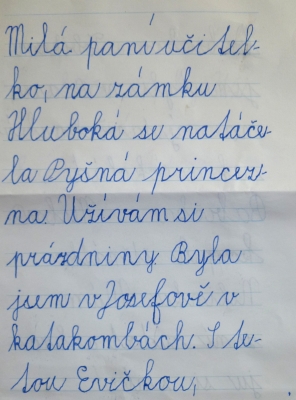 Milá paní učitel-
ko, na zámku
Hluboká se natáče-
la Pyšná princez-
na Užívám si
prázdniny. Byla
jsem v Josefově v
katakombách. S te-
tou Evičkou,